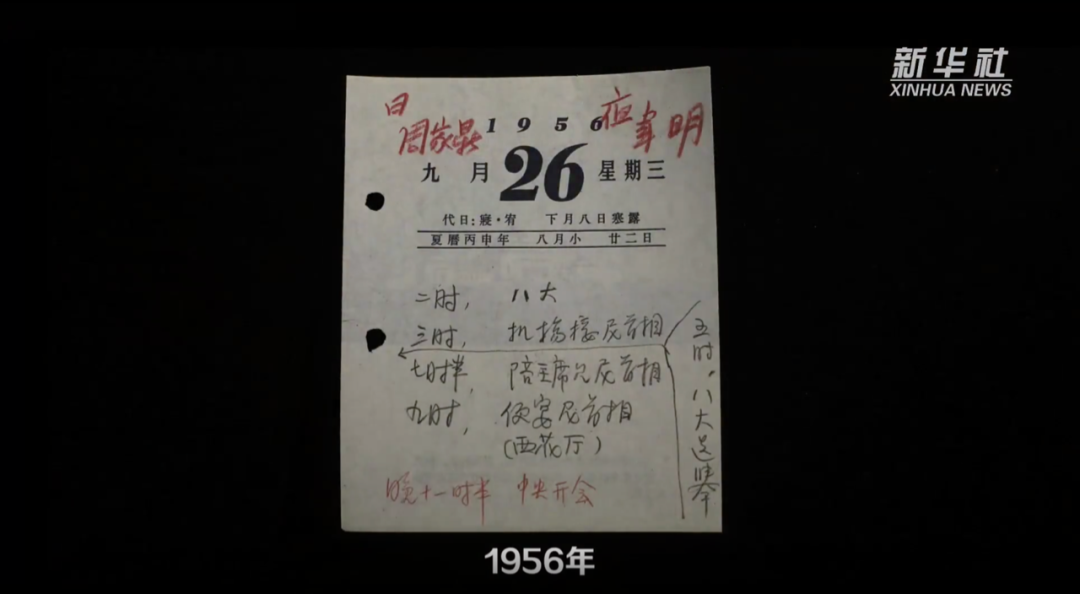 新华社
XINHUA NEWS
日
周家鼎
1956
韋明
九月 26 星期三
代日:寢·宥 下月八日寒露
夏曆丙申年 八月小 廿二日
二时, 八大
三时, 机場接尼首相
七时半, 陪主席见尼首相
九时, 便宴尼首相
(西花厅)
五时,八大选举
晚十一时半 中央开会
1956年